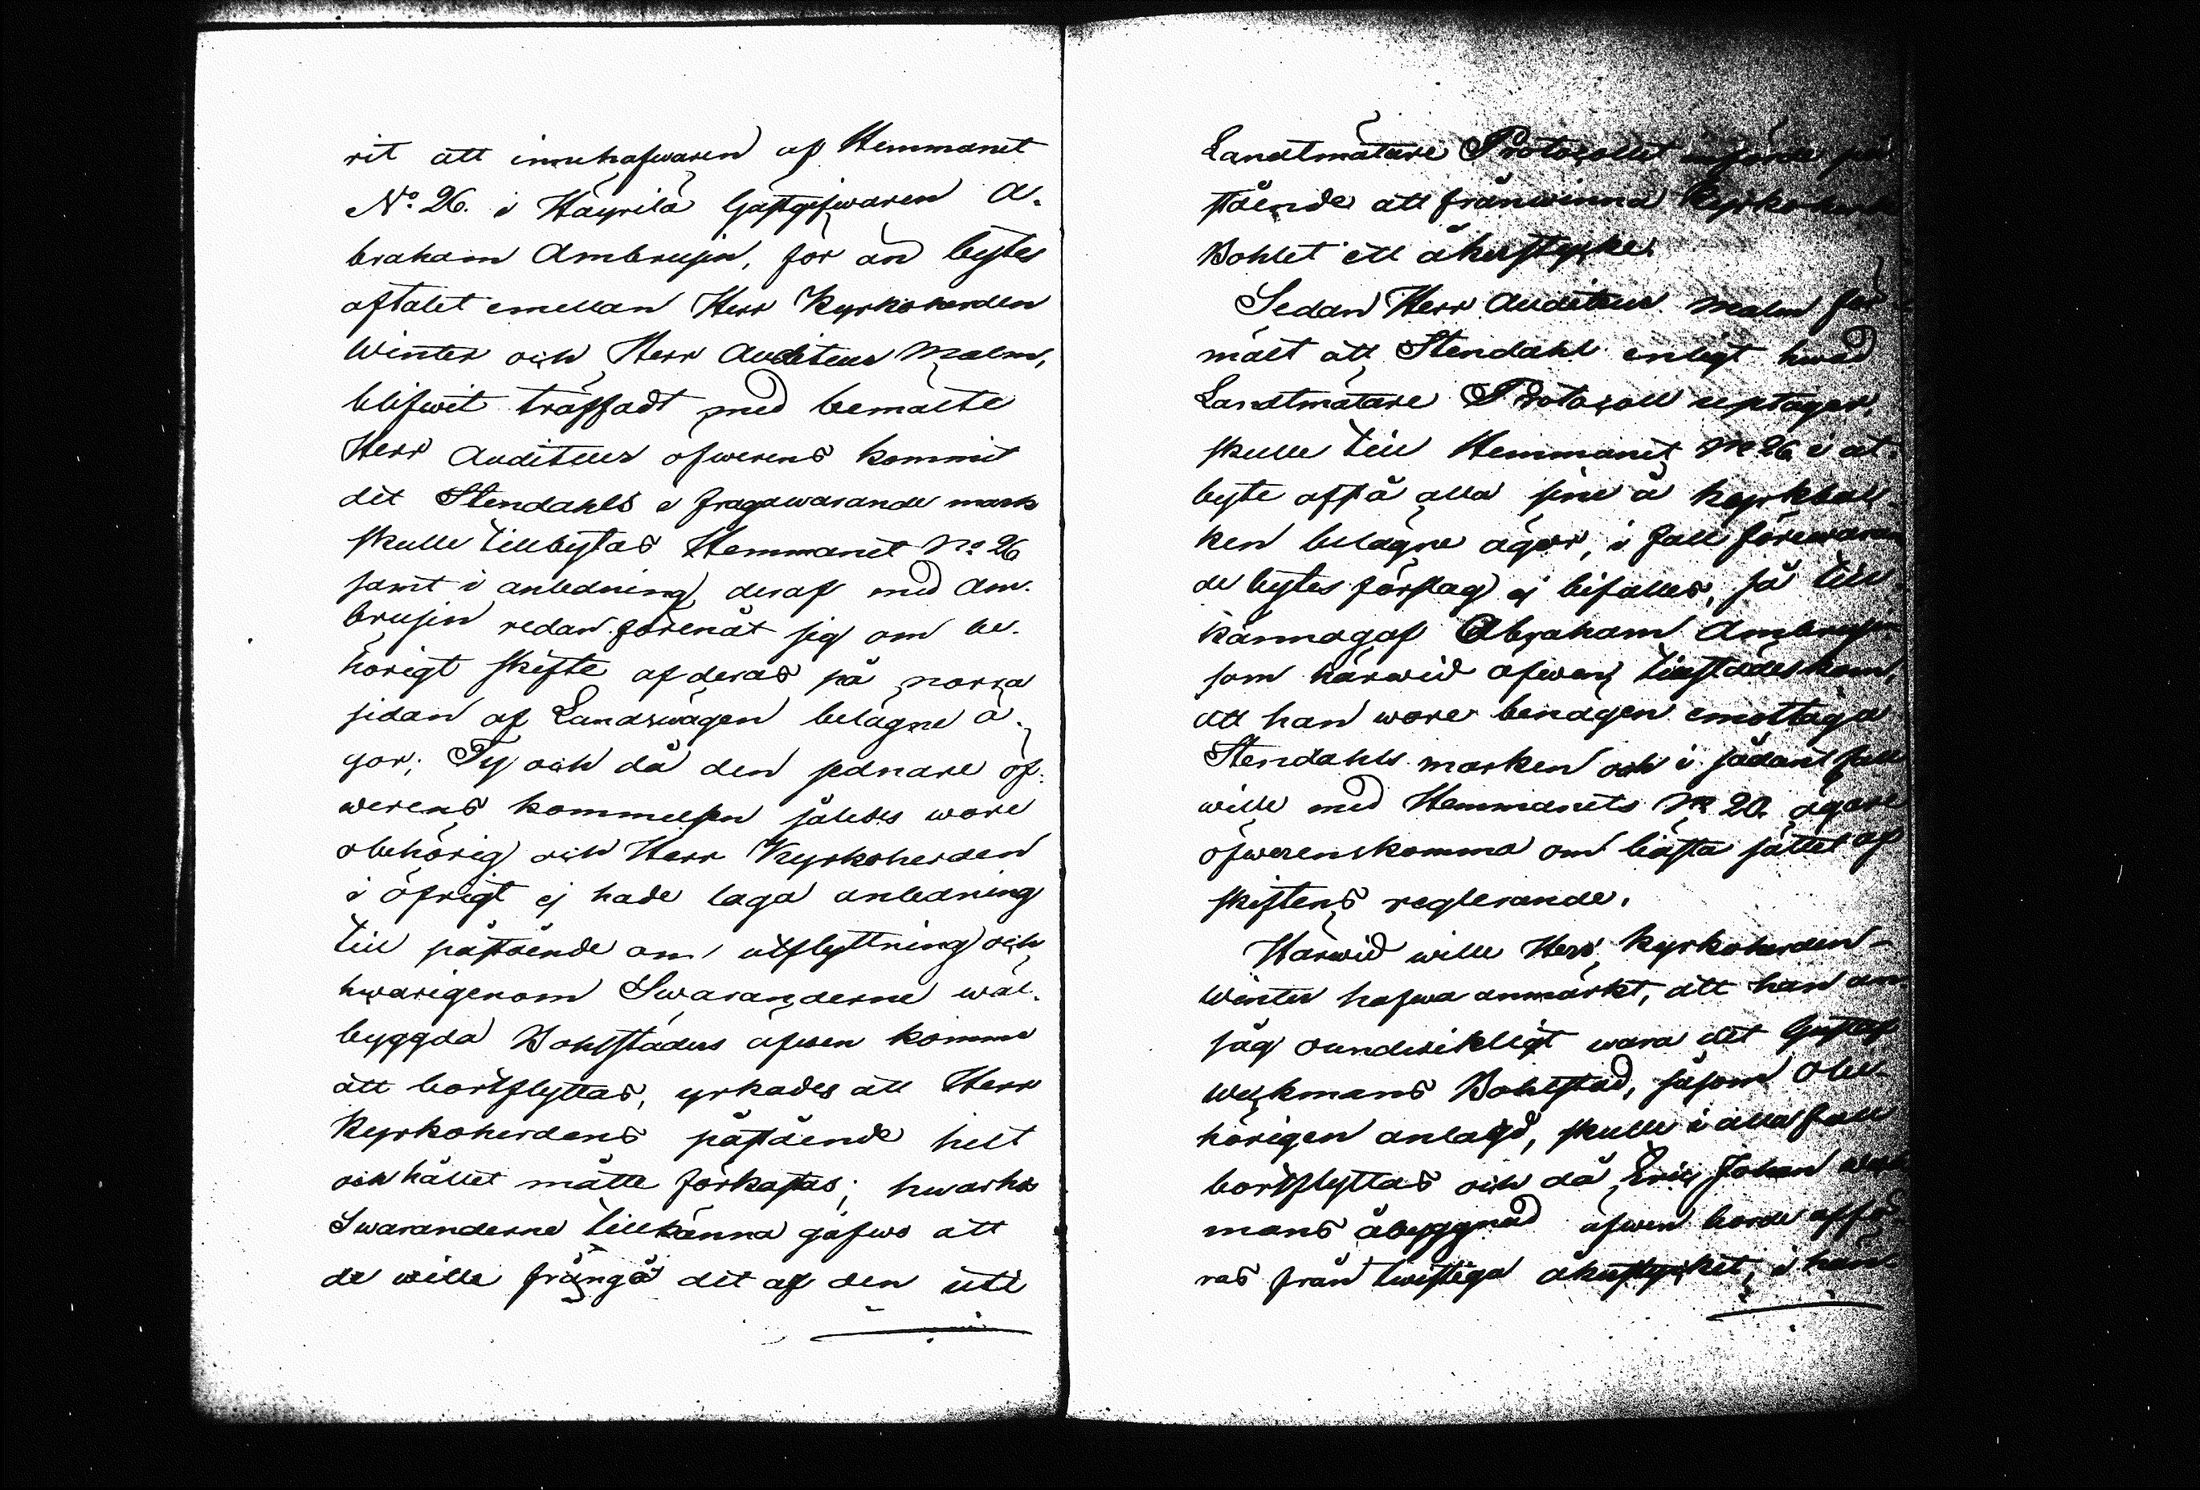 rit att innehafwaren af Hemmanet
No. 26. i Häyrilä Gästgifwaren A-
braham Ambrusin, för än bytes
aftalet emellan Herr Kyrkoherden
Winter och Herr Auditeur Malm,
blifwit träffadt med bemälte
Herr Auditeur öfwerens kommit
det Stendahls i frågawarande mark
skulle tillbytas Hemmanet No 26
samt i anledning deraf med Am-
brusin redan förenat sig om be-
hörigt skifte af deras på norra
sidan af Landswägen belägne ä-
gor; Ty och då den sednare öf-
werens kommelsen således wore
obehörig och Herr Kyrkoherden
i öfrigt ej hade laga anledning
till påstående om utflyttning och
hwarigenom Swaranderne wäl-
byggda Bohlstäder äfwen komme
att bortflyttas, yrkades att Herr
Kyrkoherdens påstående helt
och hållet måtte förkastas; hwarhos
Swaranderne tillkänna gåfwo att
de wille frångå det af den uti
Landtmätare Protocollet införde på-
stående att frånwinna Kyrkoherde
Bohlet ett åkerstycke.
Sedan Herr Auditeur Malm för-
mält att Stendahl enligt hwad
Landtmätare Protocoll uptager,
skulle till Hemmanet No 26 i ut-
byte afstå alla sine å Kyrkbac-
ken belägne ägor, i fall förewaran-
de bytes förslag ej bifalles, så till-
kännagaf Abraham Ambrusin
som härwid äfwen tillstädeskom,
att han wore benägen emottaga
Stendahls marken och i sådant fall
wille med Hemmanets No 20. ägare
öfwerenskomma om bästa sättet af
skiftens reglerande.
Härwid wille Herr Kyrkoherden
Winter hafwa anmärkt, att han an-
såg oundwikligt wara det Gustaf
Weckmans Bohlstad, såsom obe-
hörigen anlagd, skulle i alla fall
bortflyttas och då Eric Johan Weck-
mans åbyggnad äfwen borde afför-
ras från twistiga åkerstycket, i hän-